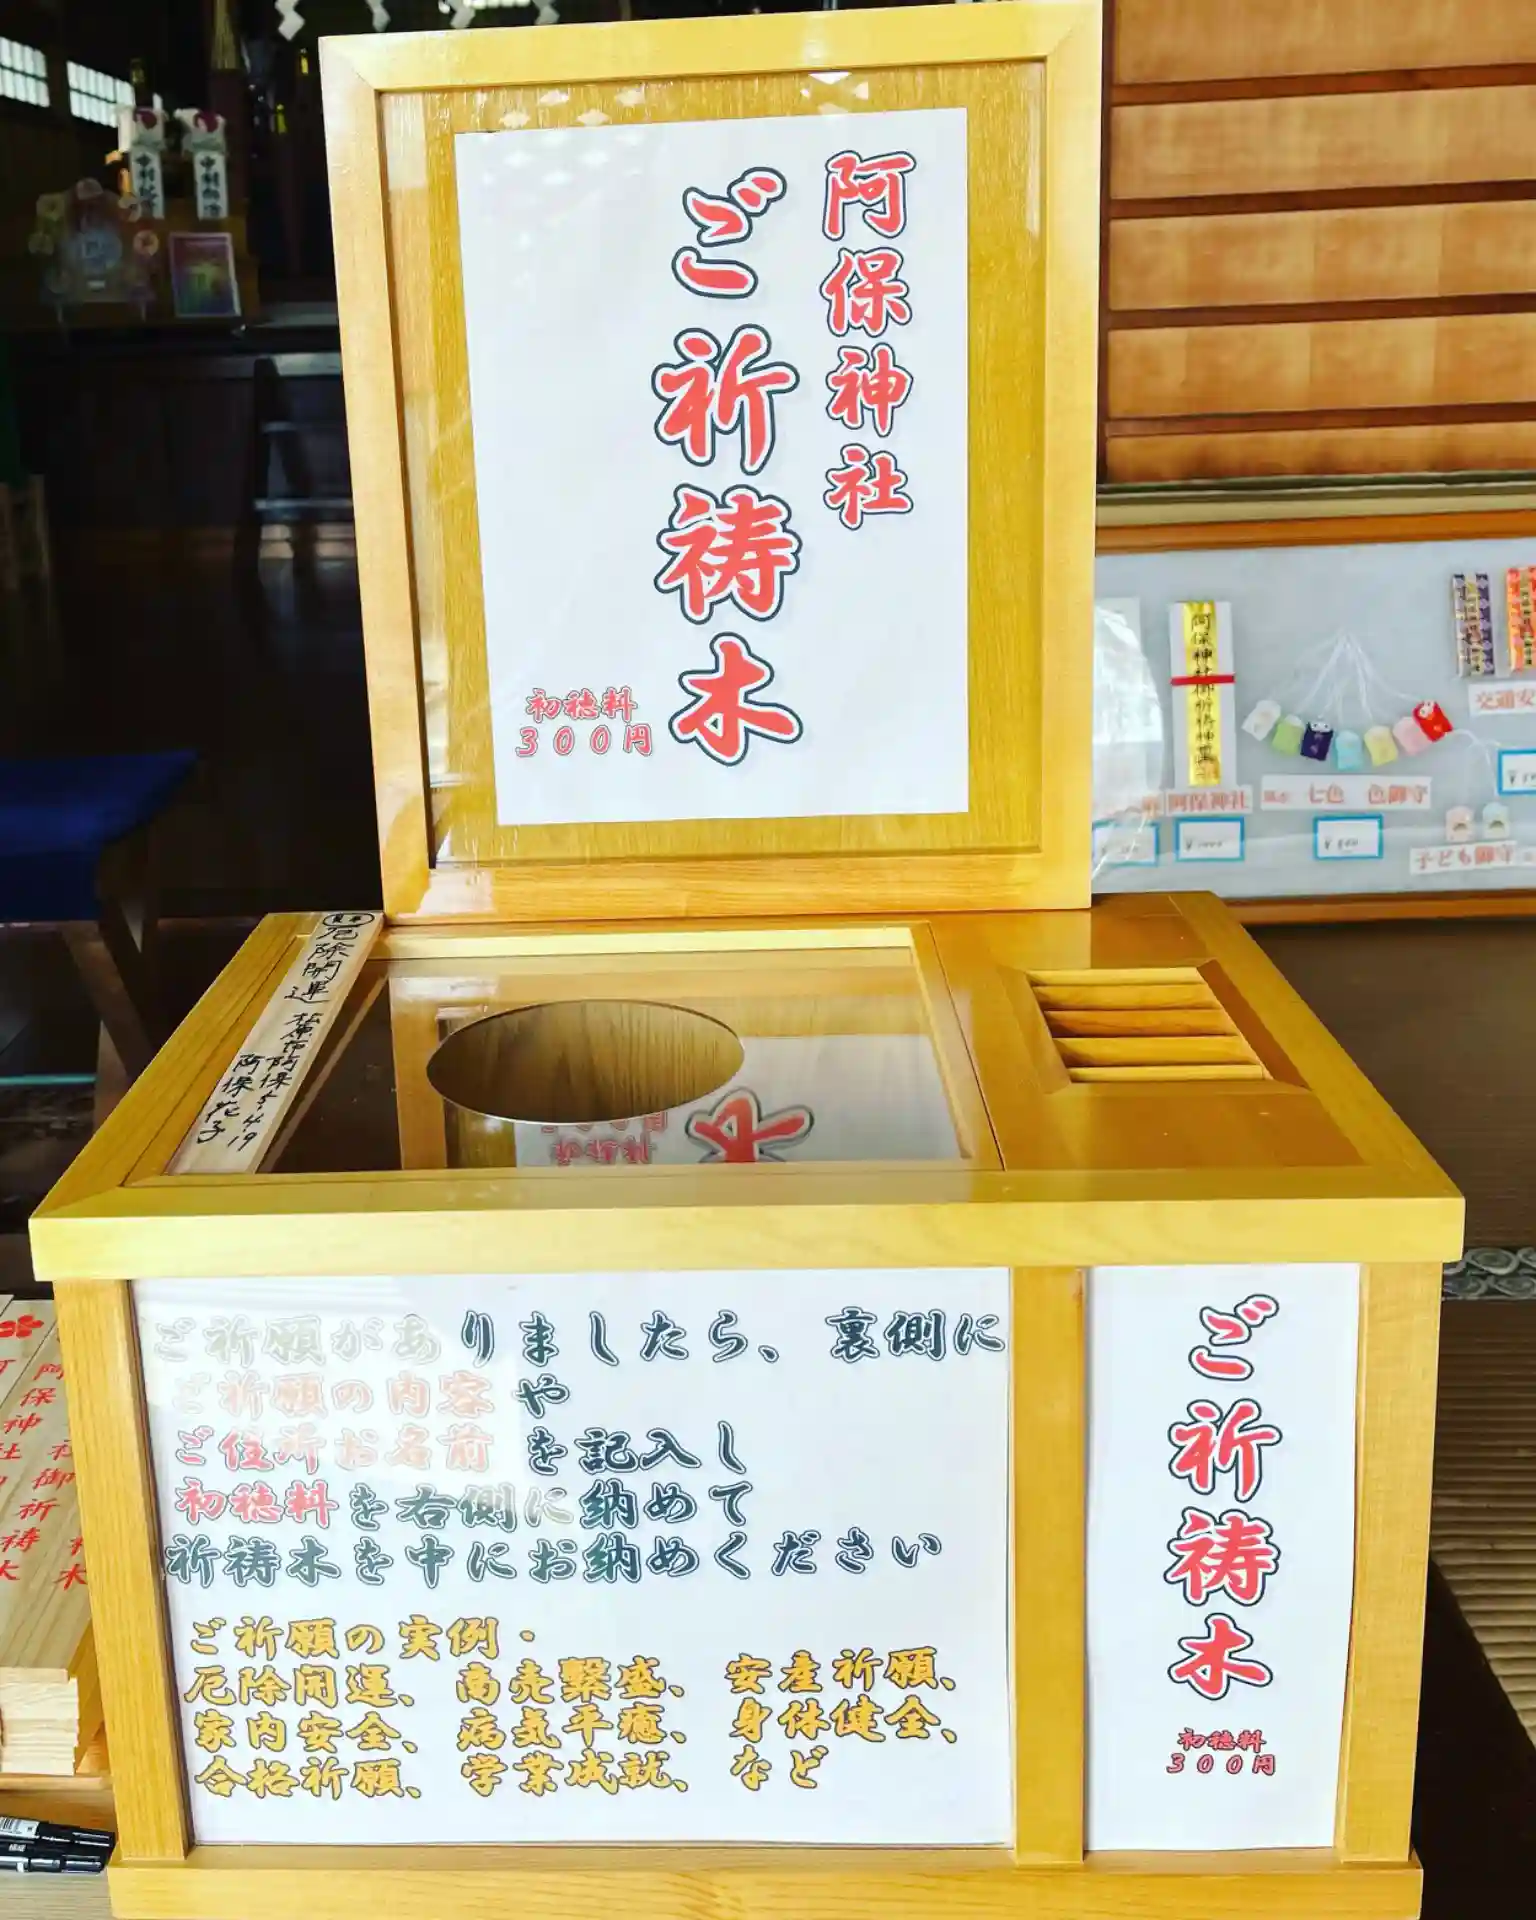 阿保神社
ご祈祷木
初穂料
３００円
厄除開運
松原市阿保5.4.19
阿保花子
ご祈願がありましたら、裏側に
ご祈願の内容や
ご住所お名前を記入し
初穂料を右側に納めて
祈祷木を中にお納めください
ご祈願の実例・
厄除開運、商売繫盛、安産祈願、
家内安全、病気平癒、身体健全、
合格祈願、学業成就、など
ご祈祷木
初穂料
３００円
阿保神社御祈祷神璽
阿保神社
七色 色御守
¥1000
¥500
交通安
子ども御守
阿保神社御祈祷木